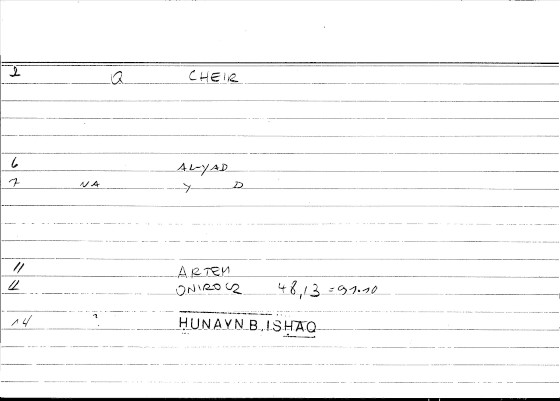 2 Q CHEIR
6 AL-YAD
7 NA Y D
11 ARTEM
12 ONIROCR 48,13 = 91.10
14 ? HUNAYN B. ISHAQ